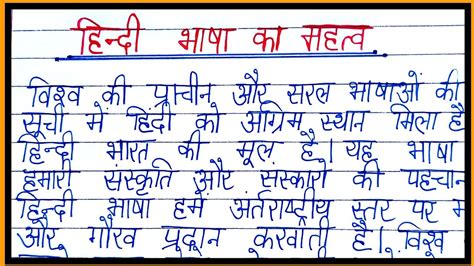 हिन्दी भाषा का महत्व
विश्व की प्राचीन और सरल भाषाओं की
सूची में हिंदी को अग्रिम स्थान मिला है
हिन्दी भारत की मूल है। यह भाषा
हमारी संस्कृति और संस्कारों की पहचान
हिन्दी भाषा हमें अर्तराष्ट्रीय स्तर पर
और गौरव प्रदान करवाती है। विश्व